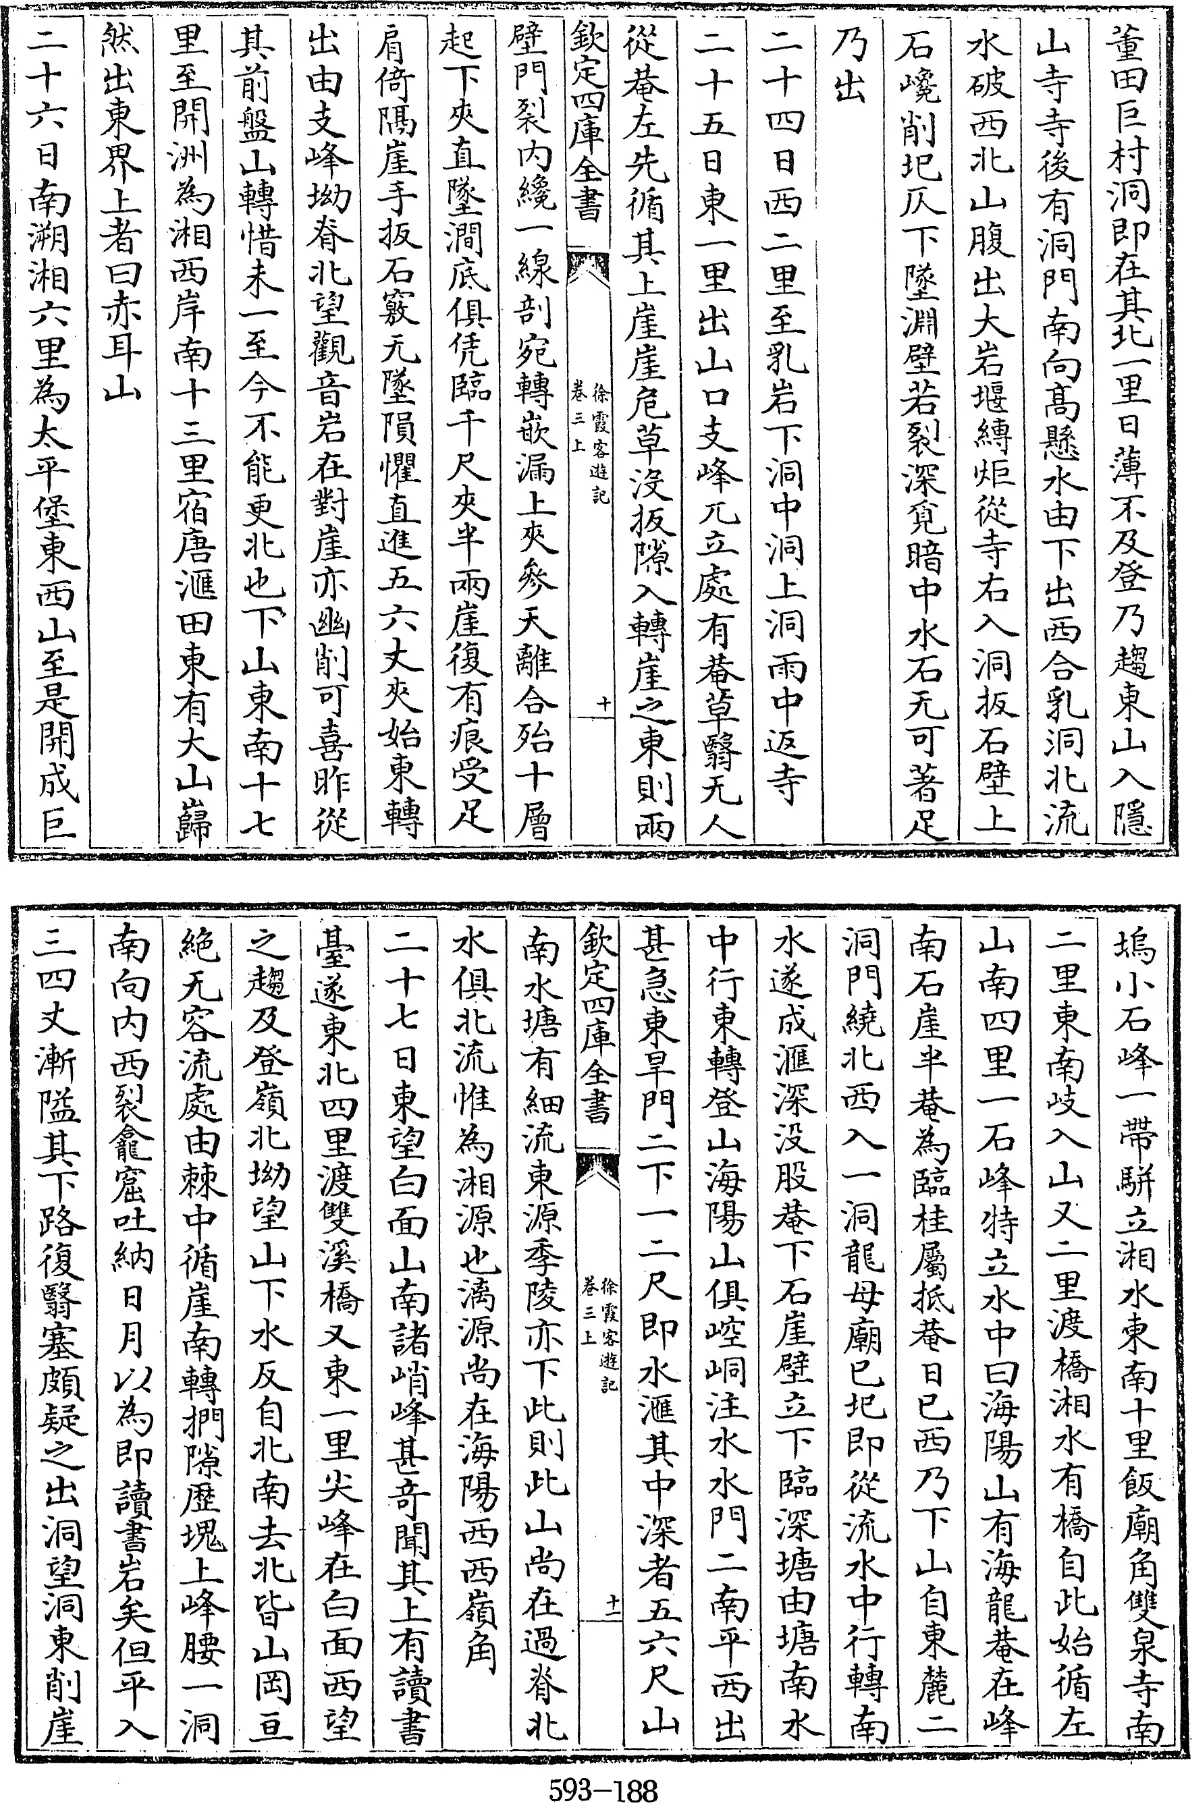 董田巨村洞即在其北一里日薄不及登乃趨東山入隱
山寺寺後有洞門南向高懸水由下出西合乳洞北流
水破西北山腹出大岩堰縛炬從寺右入洞扳石壁上
石巉削圯仄下墜淵壁若裂深覓暗中水石无可著足
乃出
二十四日西二里至乳岩下洞中洞上洞雨中返寺
二十五日東一里出山口支峰兀立處有菴草翳无人
從菴左先循其上崖崖危草沒扳隙入轉崖之東則兩
欽定四庫全書
徐霞客遊記
卷三上
十
壁門裂内纔一線剖宛轉嵌漏上夾參天離合殆十層
起下夾直墜澗底俱凭臨千尺夾半兩崖復有痕受足
肩倚隔崖手扳石竅无墜隕懼直進五六丈夾始東轉
出由支峰坳脊北望觀音岩在對崖亦幽削可喜昨從
其前盤山轉惜未一至今不能更北也下山東南十七
里至開洲為湘西岸南十三里宿唐滙田東有大山巋
然出東界上者曰赤耳山
二十六日南溯湘六里為太平堡東西山至是開成巨
塢小石峰一帶駢立湘水東南十里飯廟角雙泉寺南
二里東南岐入山又二里渡橋湘水有橋自此始循左
山南四里一石峰特立水中曰海陽山有海龍菴在峰
南石崖半菴為臨桂屬抵菴日已西乃下山自東麓二
洞門繞北西入一洞龍母廟已圯即從流水中行轉南
水遂成滙深没股菴下石崖壁立下臨深塘由塘南水
中行東轉登山海陽山俱崆峒注水水門二南平西出
甚急東旱門二下一二尺即水滙其中深者五六尺山
欽定四庫全書
徐霞客遊記
卷三上
十一
南水塘有細流東源季陵亦下此則此山尚在過脊北
水俱北流惟為湘源也漓源尚在海陽西西嶺角
二十七日東望白面山南諸峭峰甚奇聞其上有讀書
臺遂東北四里渡雙溪橋又東一里尖峰在白面西望
之趨及登嶺北坳望山下水反自北南去北皆山岡亘
絶无容流處由棘中循崖南轉捫隙歴塊上峰腰一洞
南向内西裂龕窟吐納日月以為即讀書岩矣但平入
三四丈漸隘其下路復翳塞頗疑之出洞望洞東削崖
593-188